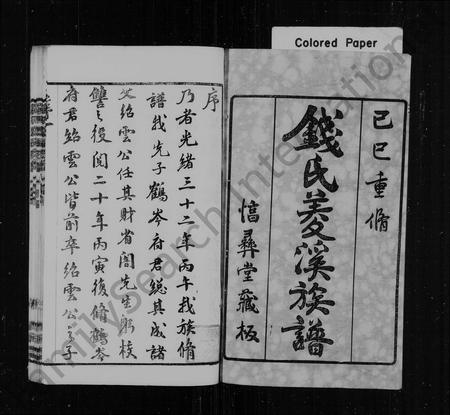 Colored Paper
己巳重脩
錢氏菱溪族譜
惇彝堂藏板
序
乃者光緒三十二年丙午我族脩
譜我先子鶴岑府君總其成諸
父紹雲公任其財省閭先生躬校
讐之役閱二十年丙寅復脩鶴岑
府君紹雲公皆前卒紹雲公子
familysearch international